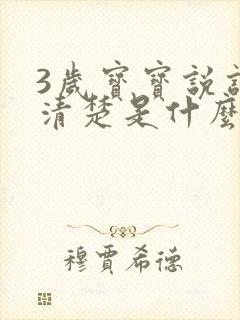 3歲寶寶說
清楚是什麼
穆賈希德